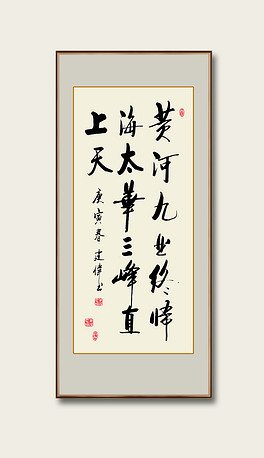 黄河九曲终归
海太華三峰直
上天
庚寅春建偉书